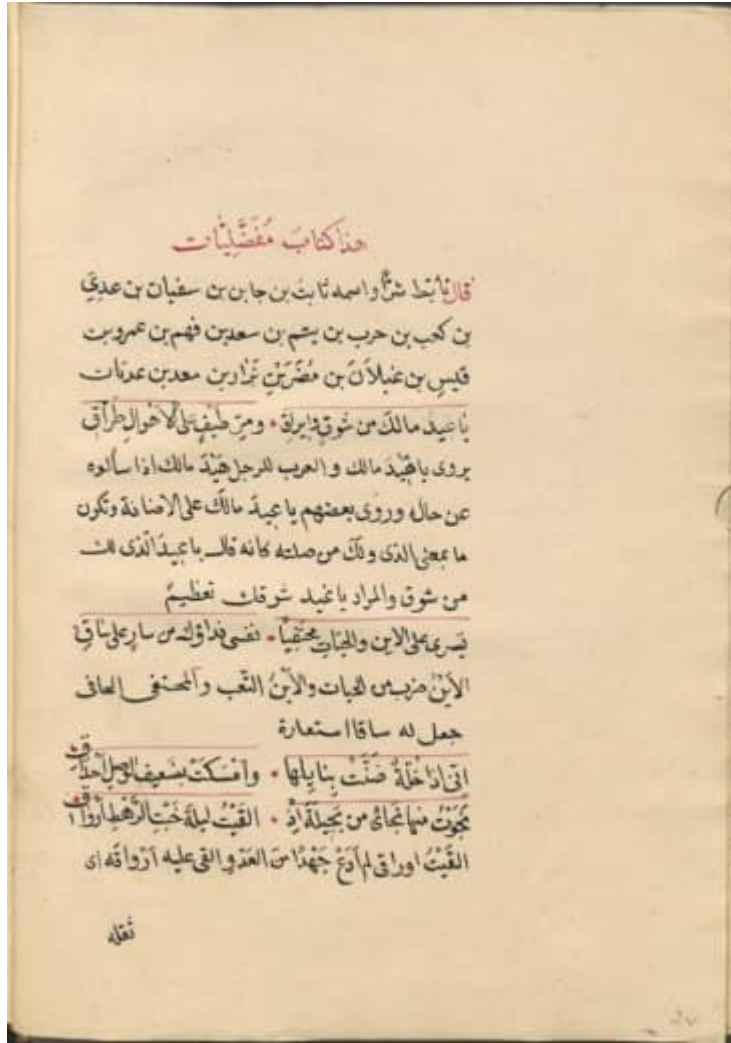 هذا كتاب مُفَضَّلِيّات
قال تأبّط شرّاً واسمه ثابت بن جابر بن سفيان بن عدي
بن كعب بن حرب بن يتم بن سعد بن فهم بن عمرو بن
قيس بن عيلان بن مُضَر بن نزار بن معد بن عدنان
يا عيد مالك من شوق وايراق • ومرّ طيف على الاهوال طرّاق
يروى يا هَيْدَ مالك والعرب للرجل هَيْدَ مالك اذا سألوه
عن حاله وروى بعضهم يا عيدَ مالك على الاضافة وتكون
ما بمعنى الذى ولك من صلته كانه قال يا عيدَ الّذى لك
من شوق والمراد يا عيد شوقك تعظيمٌ
يَسرى على الاين والحيّاتِ محتفياً • نفسى فداؤك من سارٍ على ساقِ
الأَيْنُ ضرب من الحيات والأينُ التّعب والمحتفى الحافى
جعل له ساقا استعارة
انّى اذا خُلّةٌ ضَنَّتْ بِنايِلِها • وأَمْسَكَتْ بضعيف الوصل أحذاقِ
نَجَوْتُ منها نَجائى من بَجِيلَةَ إذ • القَيْتُ ليلةَ خَبْتِ الرَّهْطِ أرْواقى
القَيْتُ اوراقى لم أدَعْ جَهْدًا من العَدْوِ والقى عليه أرْواقَه اى
ثقله